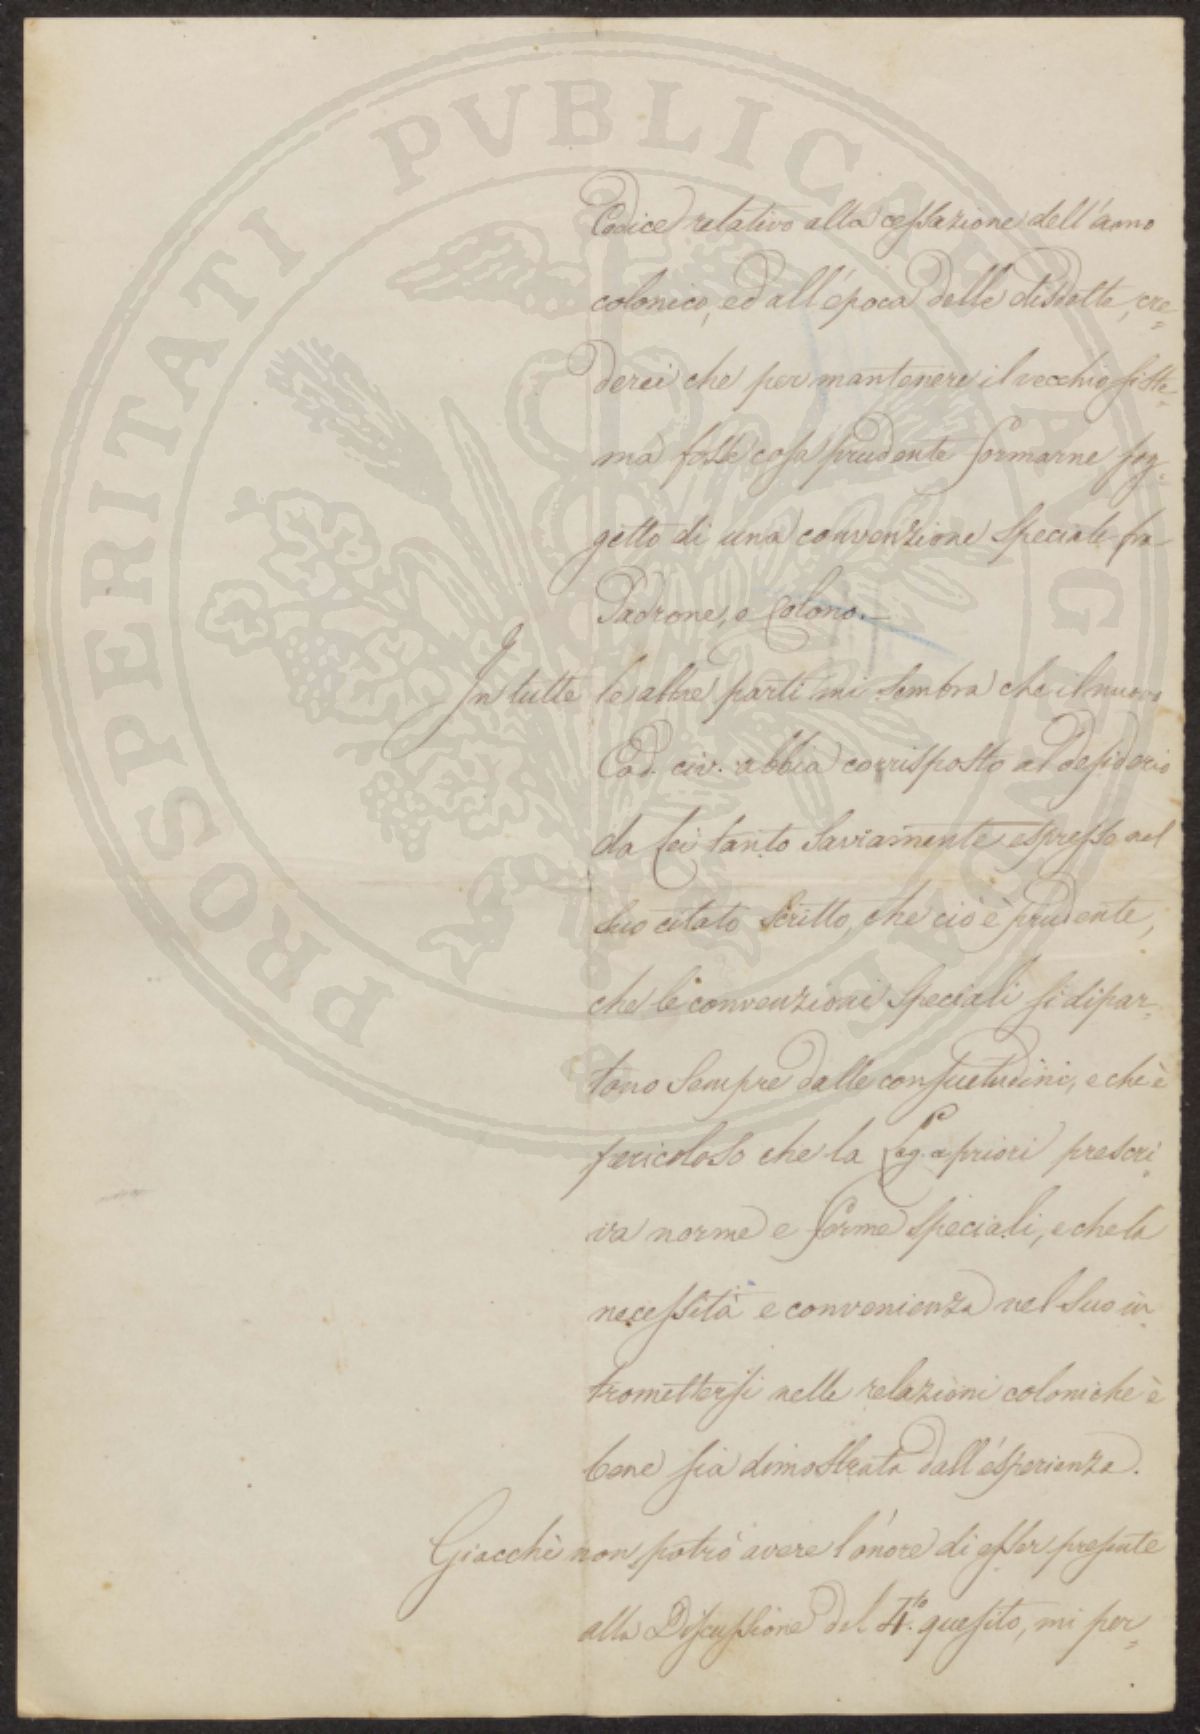 PROSPERITATI PVBLICAE AVGENDAE
Codice relativo alla cessazione dell'anno
colonico, ed all'epoca delle disdette, cre=
derei che per mantenere il vecchio siste=
ma fosse cosa prudente formarne sog=
getto di una convenzione speciale fra
Padrone, e Colono.—
In tutte le altre parti mi sembra che il nuovo
Cod. civ. abbia corrisposto al desiderio
da Lei tanto saviamente espresso nel
suo citato scritto, che cioè è prudente,
che le convenzioni speciali si dipar=
tano sempre dalle consuetudini, e che è
pericoloso che la Leg. a priori prescri=
va norme e forme speciali, e che la
necessità e convenienza nel suo in=
tromettersi nelle relazioni coloniche è
bene sia dimostrata dall'esperienza.
Giacchè non potrò avere l'onore di esser presente
alla Discussione del 4.to quesito, mi per=